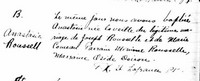 B.
Anastasie
Roussell
Le même jour nous avons baptisé
Anastasie née la veille du légitime mariage
de Joseph Rousselle & de Marie
Comeau Parrain Maxime Rousselle,
Marraine Elide Doiron